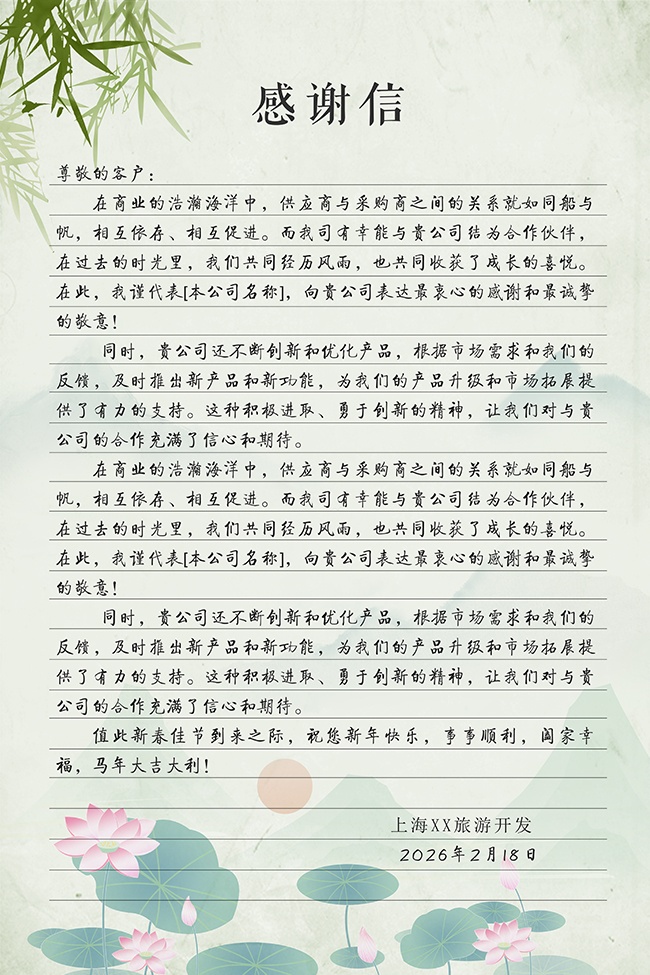 感谢信
尊敬的客户：
在商业的浩瀚海洋中，供应商与采购商之间的关系就如同船与
帆，相互依存、相互促进。而我司有幸能与贵公司结为合作伙伴，
在过去的时光里，我们共同经历风雨，也共同收获了成长的喜悦。
在此，我谨代表[本公司名称]，向贵公司表达最衷心的感谢和最诚挚
的敬意！
同时，贵公司还不断创新和优化产品，根据市场需求和我们的
反馈，及时推出新产品和新功能，为我们的产品升级和市场拓展提
供了有力的支持。这种积极进取、勇于创新的精神，让我们对与贵
公司的合作充满了信心和期待。
在商业的浩瀚海洋中，供应商与采购商之间的关系就如同船与
帆，相互依存、相互促进。而我司有幸能与贵公司结为合作伙伴，
在过去的时光里，我们共同经历风雨，也共同收获了成长的喜悦。
在此，我谨代表[本公司名称]，向贵公司表达最衷心的感谢和最诚挚
的敬意！
同时，贵公司还不断创新和优化产品，根据市场需求和我们的
反馈，及时推出新产品和新功能，为我们的产品升级和市场拓展提
供了有力的支持。这种积极进取、勇于创新的精神，让我们对与贵
公司的合作充满了信心和期待。
值此新春佳节到来之际，祝您新年快乐，事事顺利，阖家幸
福，马年大吉大利！
上海XX旅游开发
2026年2月18日